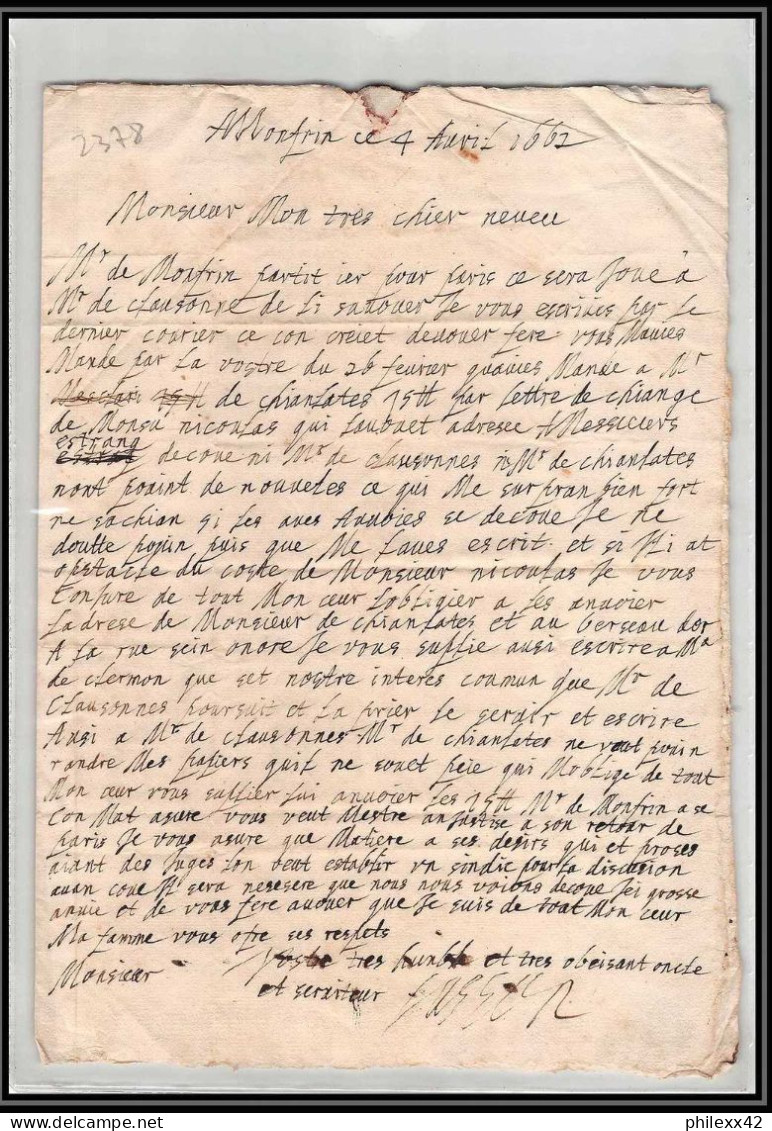 2378
AMonfrin ce 4 Avril 1662
Monsieur Mon tres chier neveu
Mr de Monfrin partit ier pour paris ce sera Joue a
Mr de clausonne de li Je vous escrives par le
dernier courier ce con creiet devouer fere vous Mavies
Mande par La vostre du 26 fevrier quavies Mande a Mr
de chianfates 15tt par lettre de chiange
de Monsu nicoulas qui adresee Messieurs
estrang
decoue ni Mr de clausonnes ni Mr de chianfates
nont point de nouveles ce qui Me surpran bien fort
ne sachian si les aves Anvoies se decoue Je ne
doutte poun puis que Me laves escrit. et si Hi at
opstacle du coste de Monsieur nicoulas Je vous
Conjure de tout Mon ceur lobligier a les anvoier
Ladrese de Monsieur de chianfates et au berseau dor
A La rue sein onore Je vous suplie ausi escrire a Mr
de clermon que set nostre interes coumun que Mr de
Clausonnes poursuit et La prier le servir et escrire
Ausi a Mr de clausonnes Mr de chianfates ne veut poin
randre Mes papiers quil ne souet peie qui Moblige de tout
Mon ceur vous suplier lui anvoier les 15tt Mr de Monfrin a se
Con Mat asure vous veut Mestre an Justise a son retour de
paris Je vous asure que Matiere a ses desirs qui et proses
aiant des Juges lon veut establir un sindic pour la discusion
avan coue Hi sera nesesere que nous nous voions decoue Jei grosse
anvie et de vous fere avouer que Je suis de tout Mon ceur
Ma famme vous ofre ses respets
Monsieur vostre tres humble et tres obeisant oncle
et serviteur
philexx42